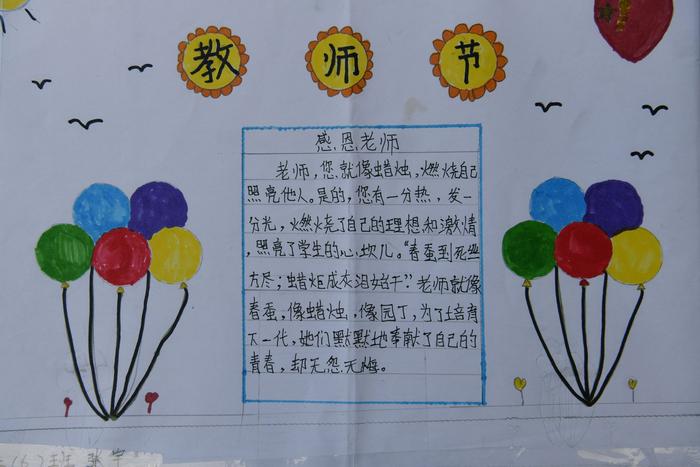 教师节
感恩老师
老师,您就像蜡烛,燃烧自己
照亮他人。是的,您有一分热,发一
分光,燃烧了自己的理想和激情
,照亮了学生的心坎儿。“春蚕到死丝
方尽;蜡炬成灰泪始干”老师就像
春蚕,像蜡烛,像园丁,为了培育
下一代,她们默默地奉献了自己的
青春,却无怨无悔。